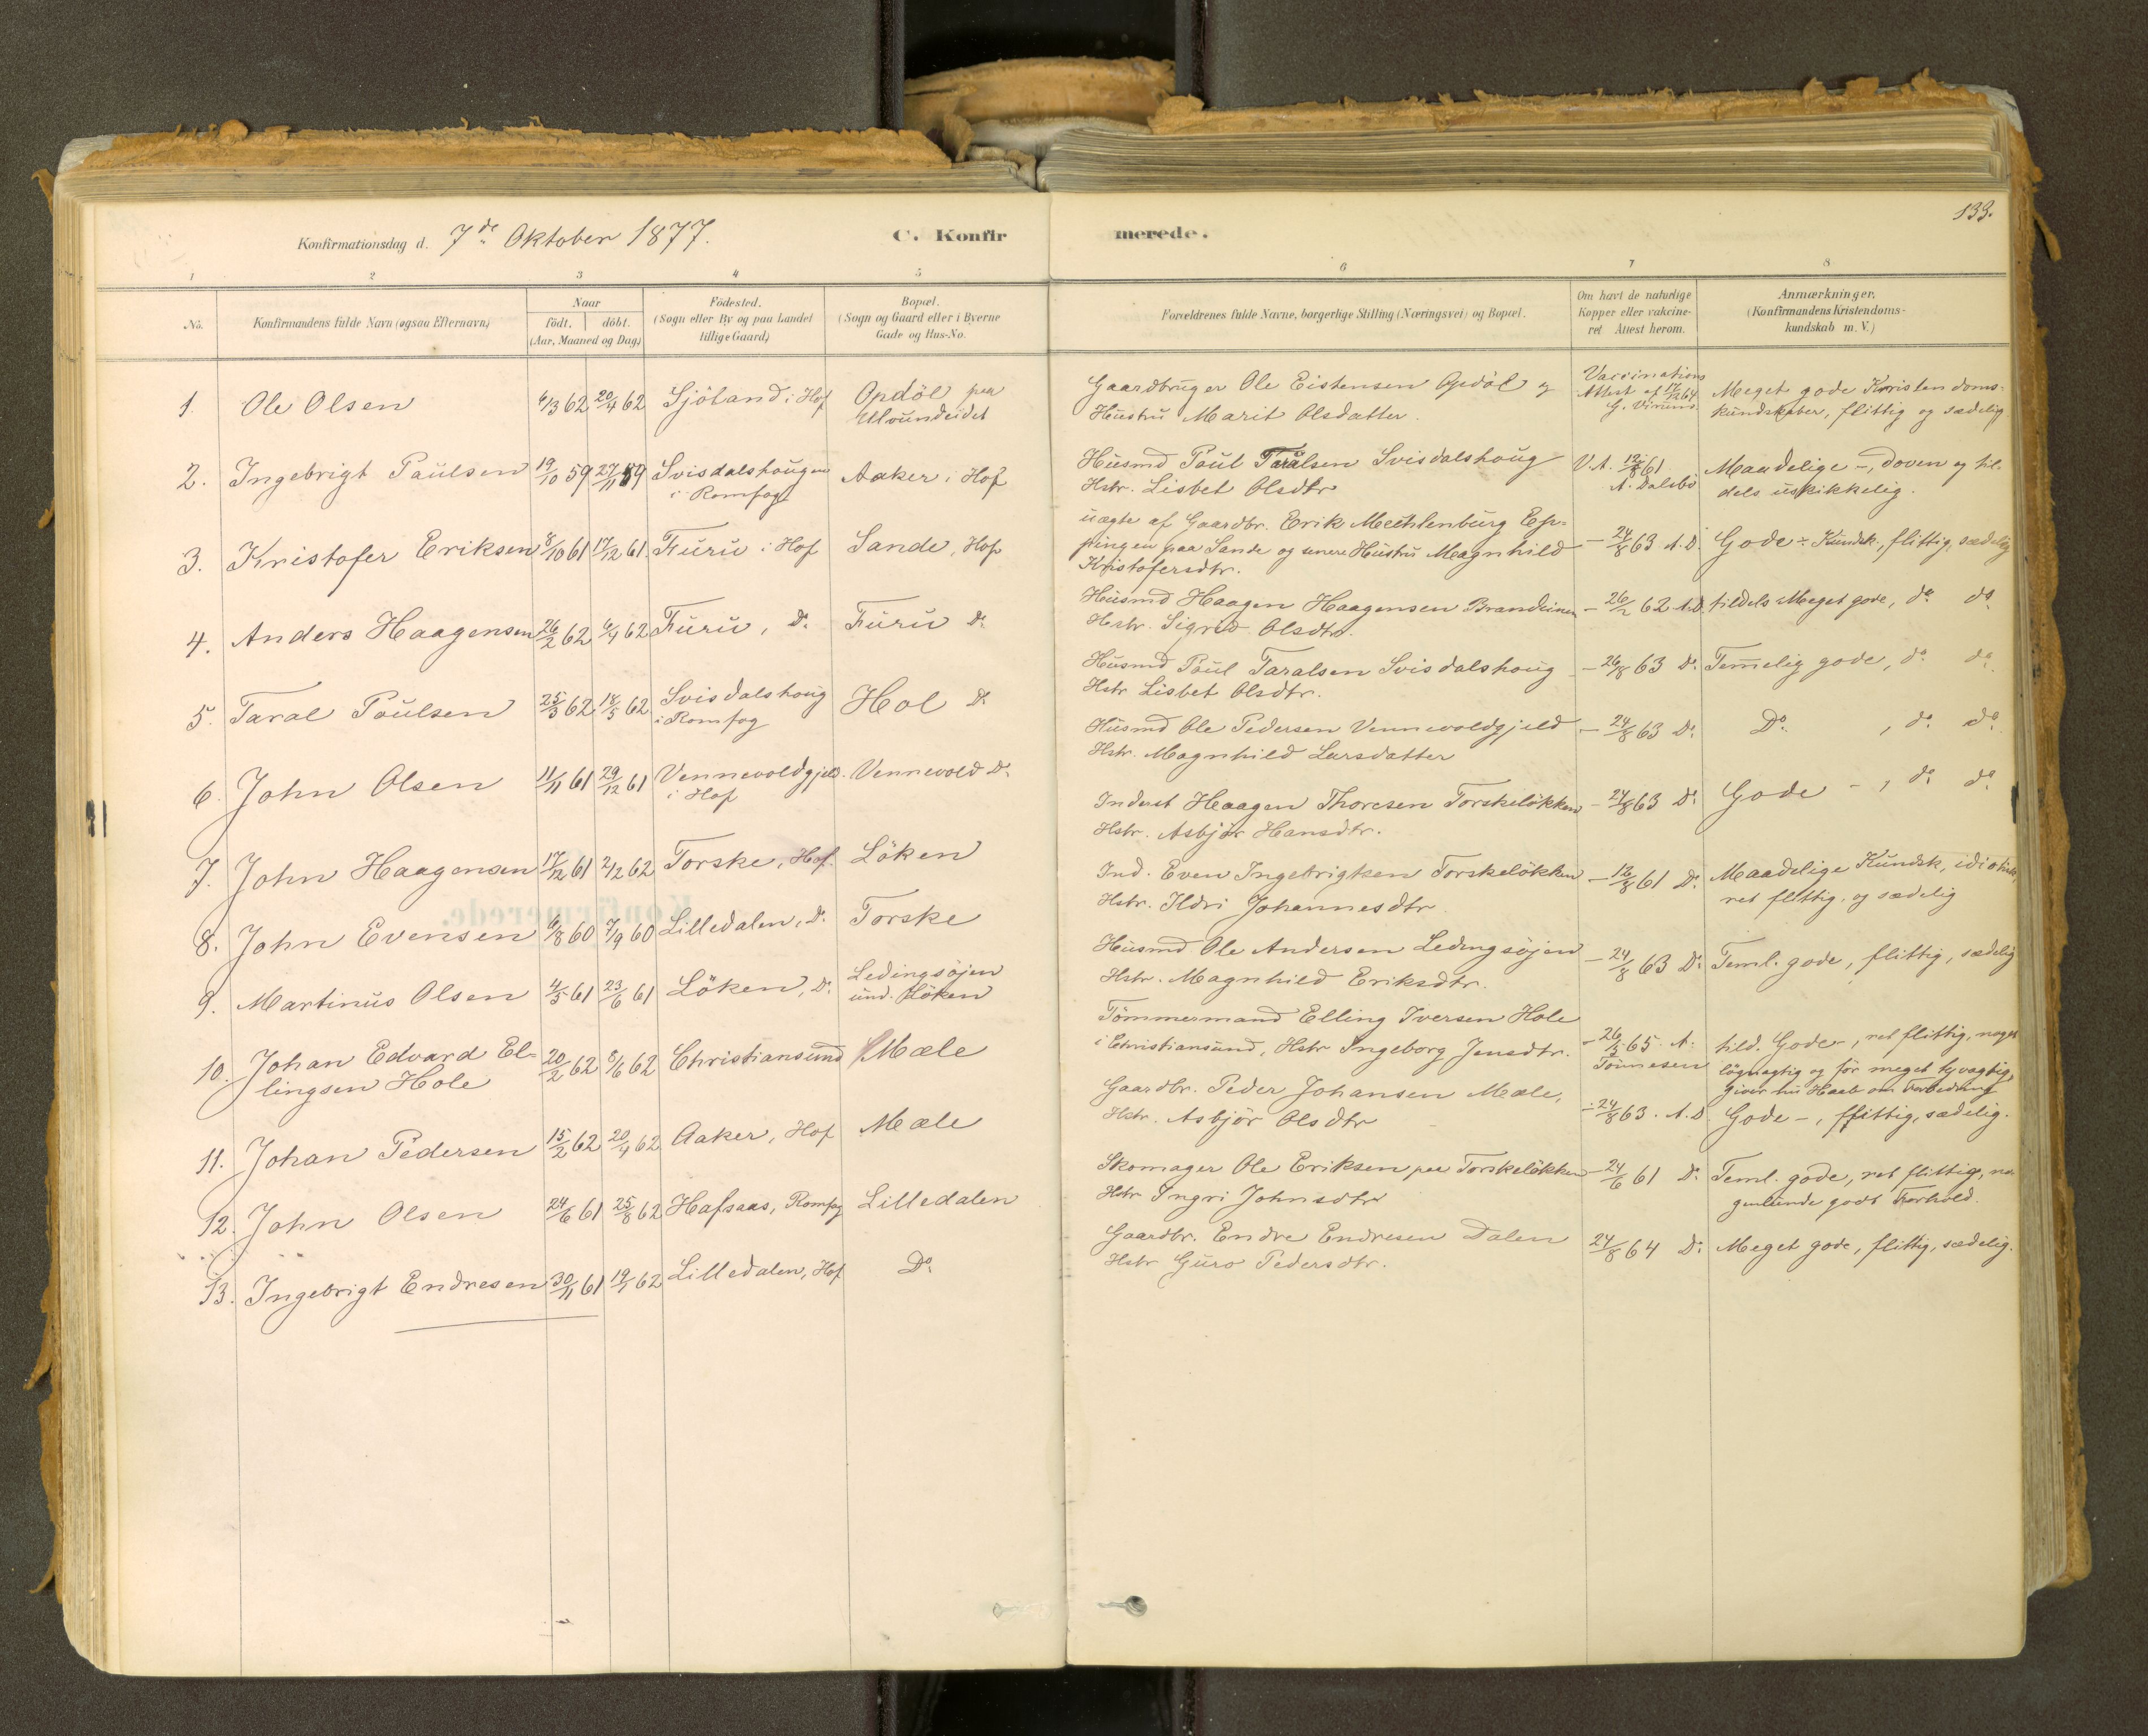 133.
Konfirmationsdag d. 7de Oktober 1877. C. Konfirmerede.
1 2 3 4 5 6 7 8
No.
Konfirmandens fulde Navn (ogsaa Efternavn)
Naar
födt. döbt.
(Aar, Maaned og Dag)
Födested.
(Sogn eller By og paa Landet
tillige Gaard)
Bopæl.
(Sogn og Gaard eller i Byerne
Gade og Hus-No.
Forældrenes fulde Navne, borgerlige Stilling (Næringsvei) og Bopæl.
Om havt de naturlige
Kopper eller vakcine-
ret Attest herom.
Anmærkninger.
(Konfirmandens Kristendoms-
kundskab m. V.)
1. Ole Olsen 6/3 62 20/4 62 Sjöland i Hof Opdöl paa
Ulvundeidet
Gaardbruger Ole Eistensen Opdöl og
Hustru Marit Olsdatter.
Vaccinations
Attest af 64
Meget gode Kristendoms-
kundskaber, flittig og sædelig
2. Ingebrigt Paulsen 19/10 59 27/11 59 Svisdalshougen
i Romfog Aaker i Hof
Husmd Poul Taralsen Svisdalshoug
Hstr. Lisbet Olsdtr
V.A. 12/8 61
A. Dalsbö
Maadelige -, doven og til-
dels uskikkelig.
3. Kristofer Eriksen 8/10 61 17/12 61. Furu i Hof Sande, Hof
uægte af Gaardbr. Erik Mechlenburg Ep-
pingen paa Sande og senere Hustru Magnhild
Kristofersdtr.
- 24/8 63 A.D.
Gode - Kundsk., flittig, sædelig
4. Anders Haagensen 26/2 62 6/4 62 Furu, Do. Furu Do.
Husmd Haagen Haagensen
Hstr. Sigrid Olsdtr.
- 26/2 62 A.D.
tildels Meget gode, do. do.
5. Taral Poulsen 25/3 62 18/5 62 Svisdalshoug
i Romfog Hol Do.
Husmd Poul Taralsen Svisdalshoug
Hstr Lisbet Olsdtr.
- 26/8 63 Do.
Temelig gode, do. do.
6. John Olsen 11/11 61 29/12 61 Vennevoldgjeld.
i Hof Vennevold Do.
Husmd Ole Pedersen Vennevoldgjeld
Hstr. Magnhild Larsdatter
- 24/8 63 Do.
Do. , do. do.
7. John Haagensen 17/12 61 2/2 62 Torske, Hof. Löken
Inderst Haagen Thoresen Torskelökken
Hstr. Asbjör Hansdtr.
- 24/8 63 Do.
Gode - , do. do.
8. John Evensen 6/8 60 7/9 60 Lilledalen, Do. Torske
Ind. Even Ingebrigtsen Torskelökken
Hstr. Ildri Johannesdtr
- 12/8 61 Do.
Maadelige Kundsk,
ret flittig og sædelig
9. Martinus Olsen 4/5 61 23/6 61 Löken, Do. Ledingsöjen
und. Löken
Husmd Ole Andersen Ledingsöjen
Hstr. Magnhild Eriksdtr.
- 24/8 63 Do.
Teml. gode, flittig, sædelig
10. Johan Edvard El-
lingsen Hole 20/2 62 8/6 62 Christiansund Mæle
Tömmermand Elling Iversen Hole
i Christiansund, Hstr Ingeborg Jensdtr.
- 26/5 65. A.
Tönnesen
tild. Gode -, ret flittig, noget
lögnagtig og för meget tyvagtig,
giver nu Haab om Forbedring
11. Johan Pedersen 15/2 62 20/4 62 Aaker, Hof Mæle
Gaardbr. Peder Johansen Mæle,
Hstr. Asbjör Olsdtr
- 24/8 63. A.D
Gode -, flittig, sædelig.
12. John Olsen 24/6 61 25/8 62 Hafsaas, Romfog Lilledalen
Skomager Ole Eriksen paa Torskelökken
Hstr Ingri Johnsdtr
- 24/6 61 Do.
Teml. gode, ret flittig, no-
genlunde godt Forhold.
13. Ingebrigt Endresen 30/11 61 19/1 62 Lilledalen, Hof Do.
Gaardbr. Endre Endresen Dalen
Hstr Guro Pedersdtr.
24/8 64 Do.
Meget gode, flittig, sædelig.